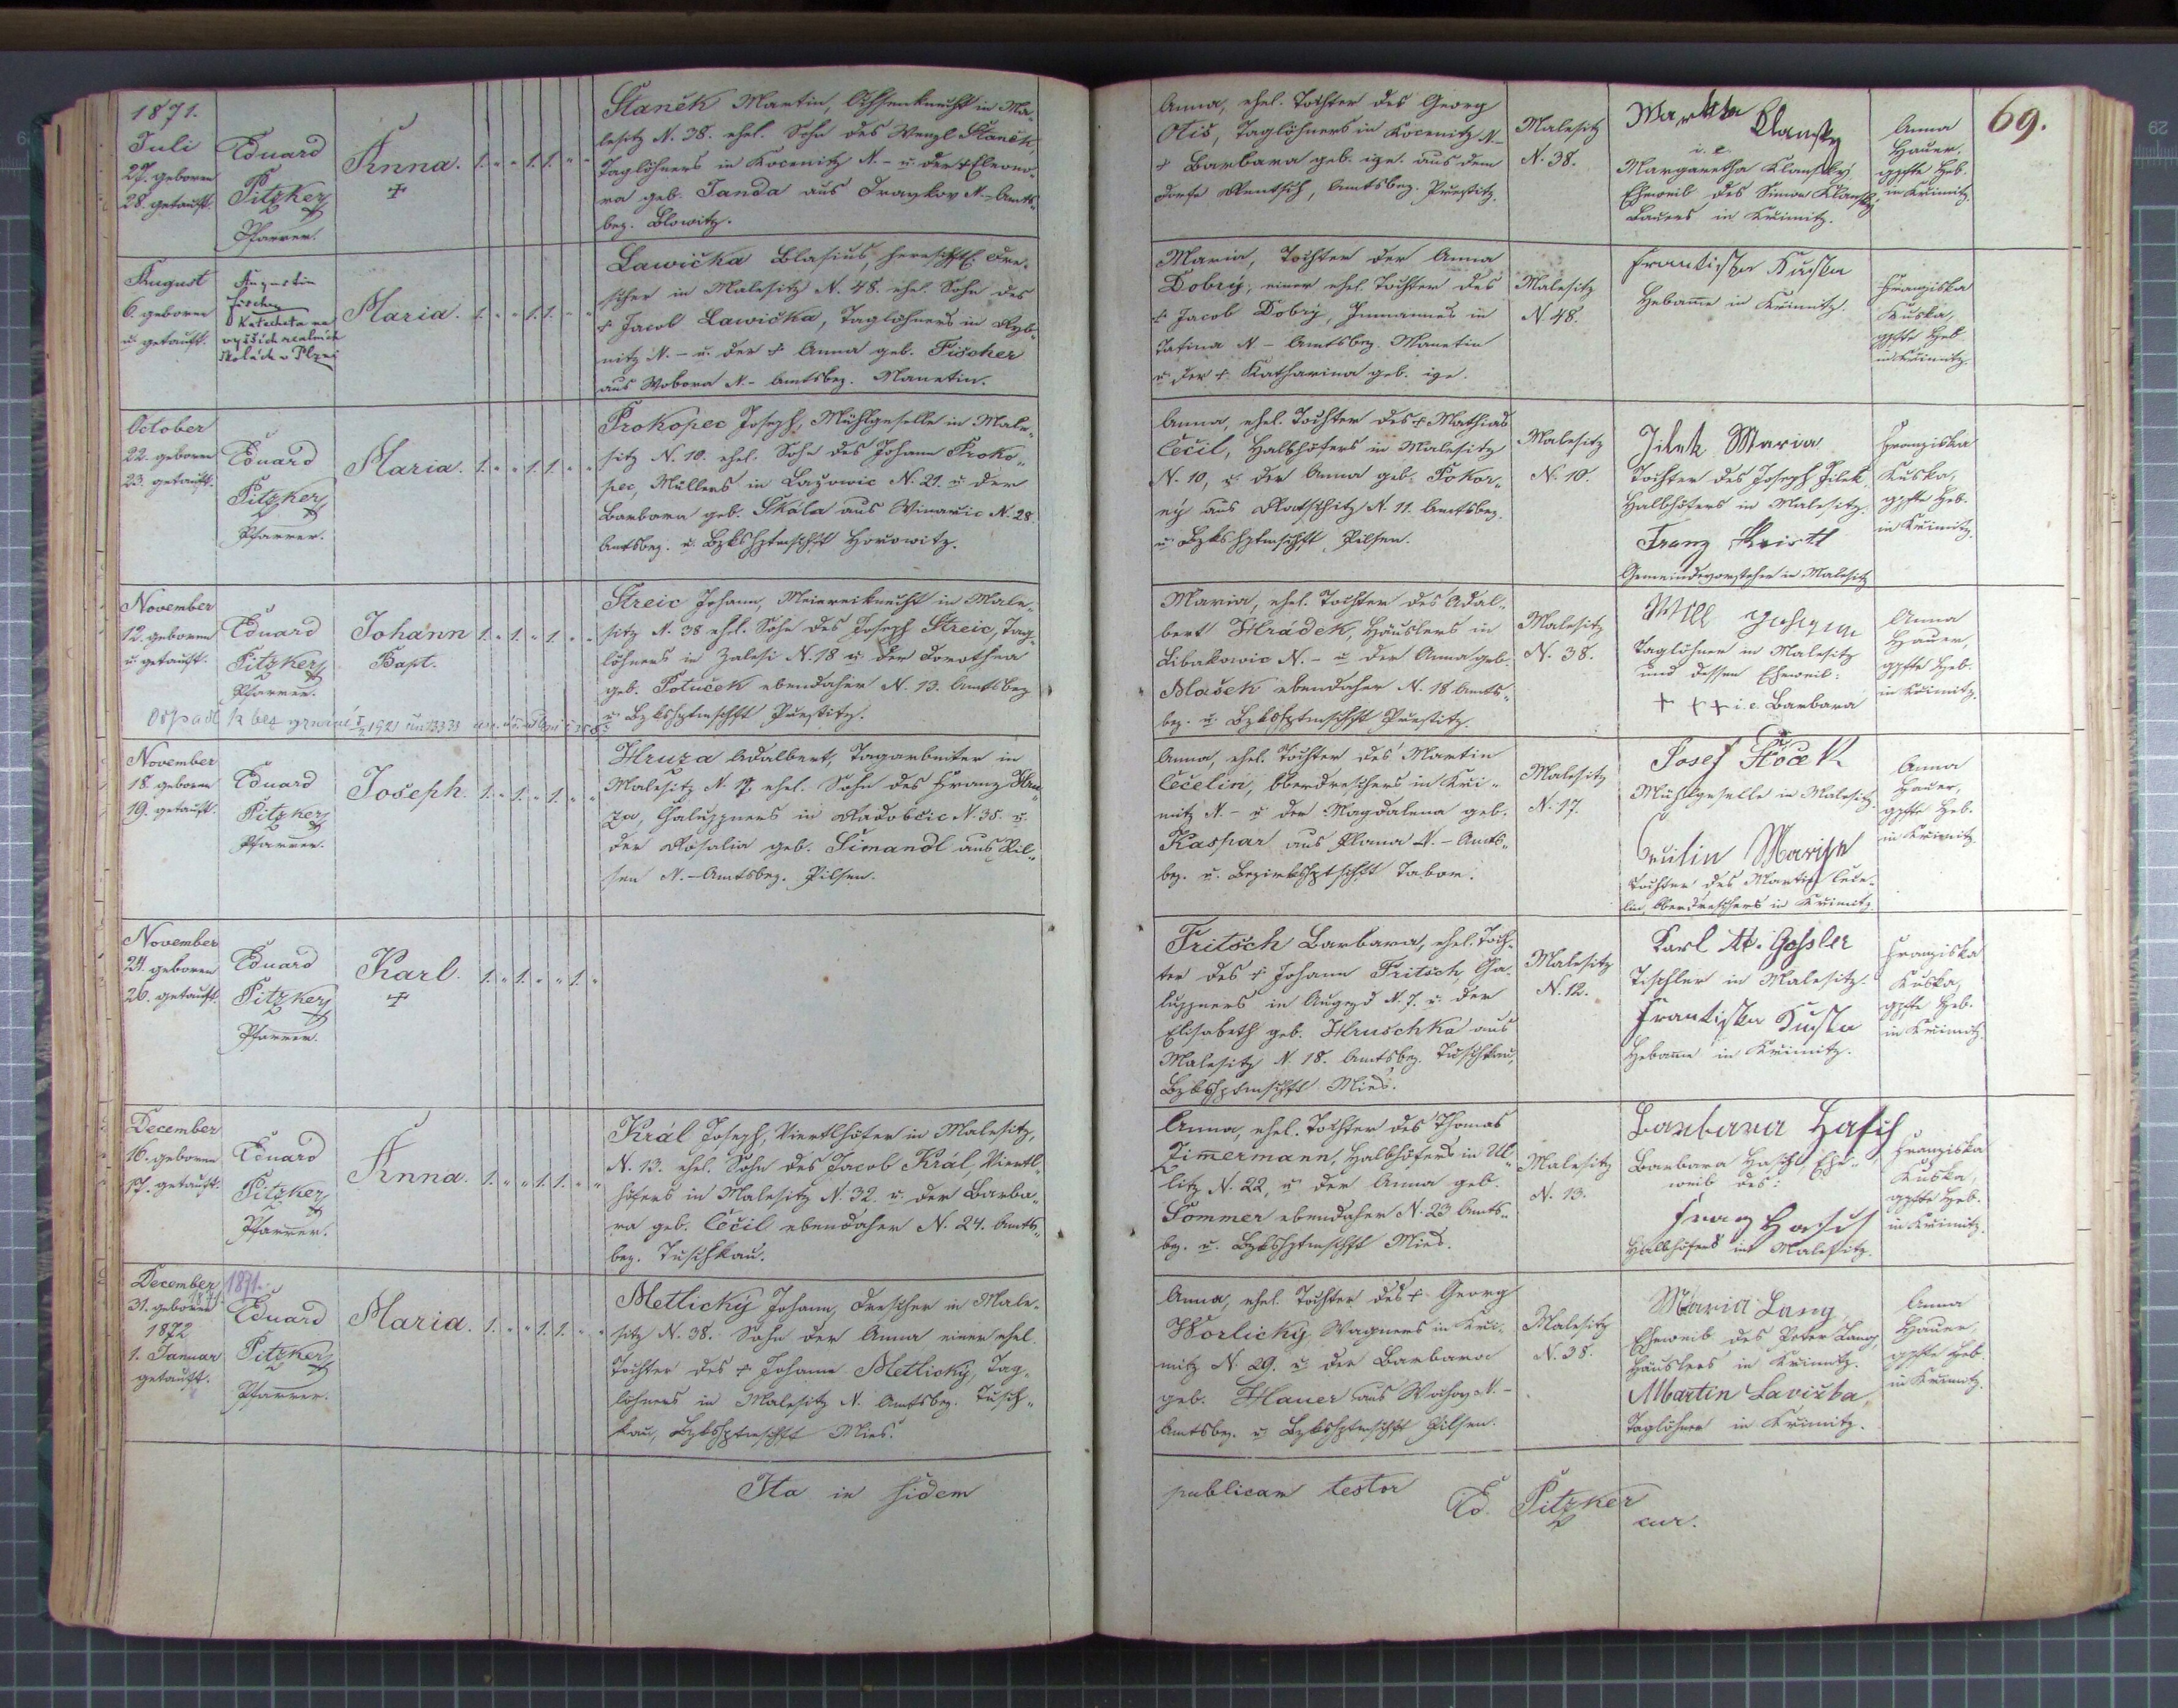 1871.
Juli
27. geboren
28. getauft.
Eduard
Pitzker
Pfarrer.
Anna.
Staněk Martin, Ochsenknecht in Ma-
lesitz N. 38. ehel. Sohn des Wenzl Staněk,
Taglöhners in Kocenitz N. - u. der + Eleono-
ra geb. Janda aus N. - Amts-
bez. Blowitz.
Anna, ehel. Tochter des Georg
Otis, Taglöhners in Kocenitz N. -
+ Barbara geb. ige. aus dem
Dorfe Amtsbez. Prestitz.
Malesitz
N. 38.
Klansky
i. e.
Margaretha Klansky
Eheweib des Simon Klansky
Bauers in Krimitz.
Anna
Hauer,
gpfte Heb.
in Krimitz.
69.
August
6. geboren
u. getauft.
Augustin
Fischer
Katecheta na
vyšších realních
školách v Plzni
Maria.
Lawička Blasius, herrschftl. Dre-
scher in Malesitz N. 48. ehel. Sohn des
+ Jacob Lawička, Taglöhners in Ryb-
nitz N. - u. der + Anna geb. Fischer
aus Wobora N. - Amtsbez. Manetin.
Maria, Tochter der Anna
Dobrý, einer ehel. Tochter des
+ Jacob Dobrý, Inmannes in
Tatina N. - Amtsbez. Manetin
u. der + Katharina geb. ige.
Malesitz
N. 48.
Frantiska Kuska
Hebamme in Krimitz.
Franziska
Kuska,
gpfte Heb.
in Krimitz.
October
22. geboren
23. getauft.
Eduard
Pitzker
Pfarrer.
Maria.
Prokopec Joseph, Mühlgeselle in Male-
sitz N. 10. ehel. Sohn des Johann Proko-
pec, Müllers in Lazowic N. 21. u. der
Barbara geb. Skála aus Winaric N. 28.
Amtsbez. u. Bzkshptmschft Horowitz.
Anna, ehel. Tochter des + Mathias
Cečil, Halbhöfers in Malesitz
N. 10, u. der Anna geb. Pokor-
ný aus Ratschitz N. 11. Amtsbez.
u. Bzkshptmschft Pilsen.
Malesitz
N. 10.
Jilek Maria
Tochter des Joseph Jilek
Halbhöfers in Malesitz.
Franz
Gemeindevorsteher in Malesitz
Franziska
Kuska,
gpfte Heb.
in Krimitz.
November
12. geboren
u. getauft.
Eduard
Pitzker
Pfarrer.
Johann
Bapt.
Streic Johann, Meiereiknecht in Male-
sitz N. 38 ehel. Sohn des Joseph Streic, Tag-
löhners in Zalesi N. 18 u. der Dorothea
geb. Potuček ebendaher N. 13. Amtsbez.
u. Bzkshptmschft Prestitz.
Maria, ehel. Tochter des Adal-
bert Hrádek, Häuslers in
Libakowic N. - u. der Anna geb.
Mašek ebendaher N. 18 Amts-
bez. u. Bzkshptmschft Prestitz.
Malesitz
N. 38.
Will Johann
Taglöhner in Malesitz
und dessen Eheweib:
+ + + i. e. Barbara
Anna
Hauer,
gpfte Heb.
in Krimitz.
November
18. geboren
19. getauft.
Eduard
Pitzker
Pfarrer.
Joseph.
Hruza Adalbert, Tagarbeiter in
Malesitz N. 17. ehel. Sohn des Franz Hru-
za, Chaluppners in Radobčic N. 35. u.
der Rosalia geb. Šimandl aus Pil-
sen N. - Amtsbez. Pilsen.
Anna, ehel. Tochter des Martin
Cečelin, Oberdreschers in Kri-
mitz N. - u. der Magdalena geb.
Kaspar aus Plana N. - Amts-
bez. u. Bezirkshptschft Tabor.
Malesitz
N. 17.
Josef
Mühlgeselle in Malesitz.
Tochter des Martin Cece-
lin, Oberdreschers in Krimitz.
Anna
Hauer,
gpfte Heb.
in Krimitz.
November
24. geboren
26. getauft.
Eduard
Pitzker
Pfarrer.
Karl.
Fritsch Barbara, ehel. Toch-
ter des + Johann Fritsch, Cha-
luppners in Augezd N. 7. u. der
Elisabeth geb. Hruschka aus
Malesitz N. 18. Amtsbez. Tuschkau,
Bzkshptmschft Mies.
Malesitz
N. 12.
Karl Gossler
Tischler in Malesitz.
Frantiska Kuska
Hebamme in Krimitz.
Franziska
Kuska,
gpfte Heb.
in Krimitz.
December
16. geboren
17. getauft.
Eduard
Pitzker
Pfarrer.
Anna.
Král Joseph, Viertlhöfer in Malesitz,
N. 13. ehel. Sohn des Jacob Král, Viertl-
höfers in Malesitz N. 32. u. der Barba-
ra geb. Cečil ebendaher N. 24. Amts-
bez. Tuschkau.
Anna, ehel. Tochter des Thomas
Zimmermann, Halbhöfers in Ul-
litz N. 22, u. der Anna geb.
Sommer ebendaher N. 23 Amts-
bez. u. Bzkshptmschft Mies.
Malesitz
N. 13.
Barbara Hasch
Barbara Hasch, Ehe-
weib des:
Franz Hasch
Halbhöfers in Malesitz.
Franziska
Kuska,
gpfte Heb.
in Krimitz.
December
31. geboren 1871
1872
1. Januar
getauft.
1871.
Eduard
Pitzker
Pfarrer.
Maria.
Metlický Johann, Drescher in Male-
sitz N. 38. Sohn der Anna einer ehel.
Tochter des + Johann Metlický, Tag-
löhners in Malesitz N. Amtsbez. Tusch-
kau, Bzkshptmschft Mies.
Anna, ehel. Tochter des + Georg
Worlický, Wagners in Kri-
mitz N. 29. u. der Barbara
geb. Hauer aus Wochoz N. -
Amtsbez. u. Bzkshptmschft Pilsen.
Malesitz
N. 38.
Maria Lang,
Eheweib des Peter Lang,
Häuslers in Krimitz.
Martin Lavička,
Taglöhner in Krimitz.
Anna
Hauer,
gpfte Heb.
in Krimitz.
Ita in fidem
publicam testor
Ed. Pitzker
cur.